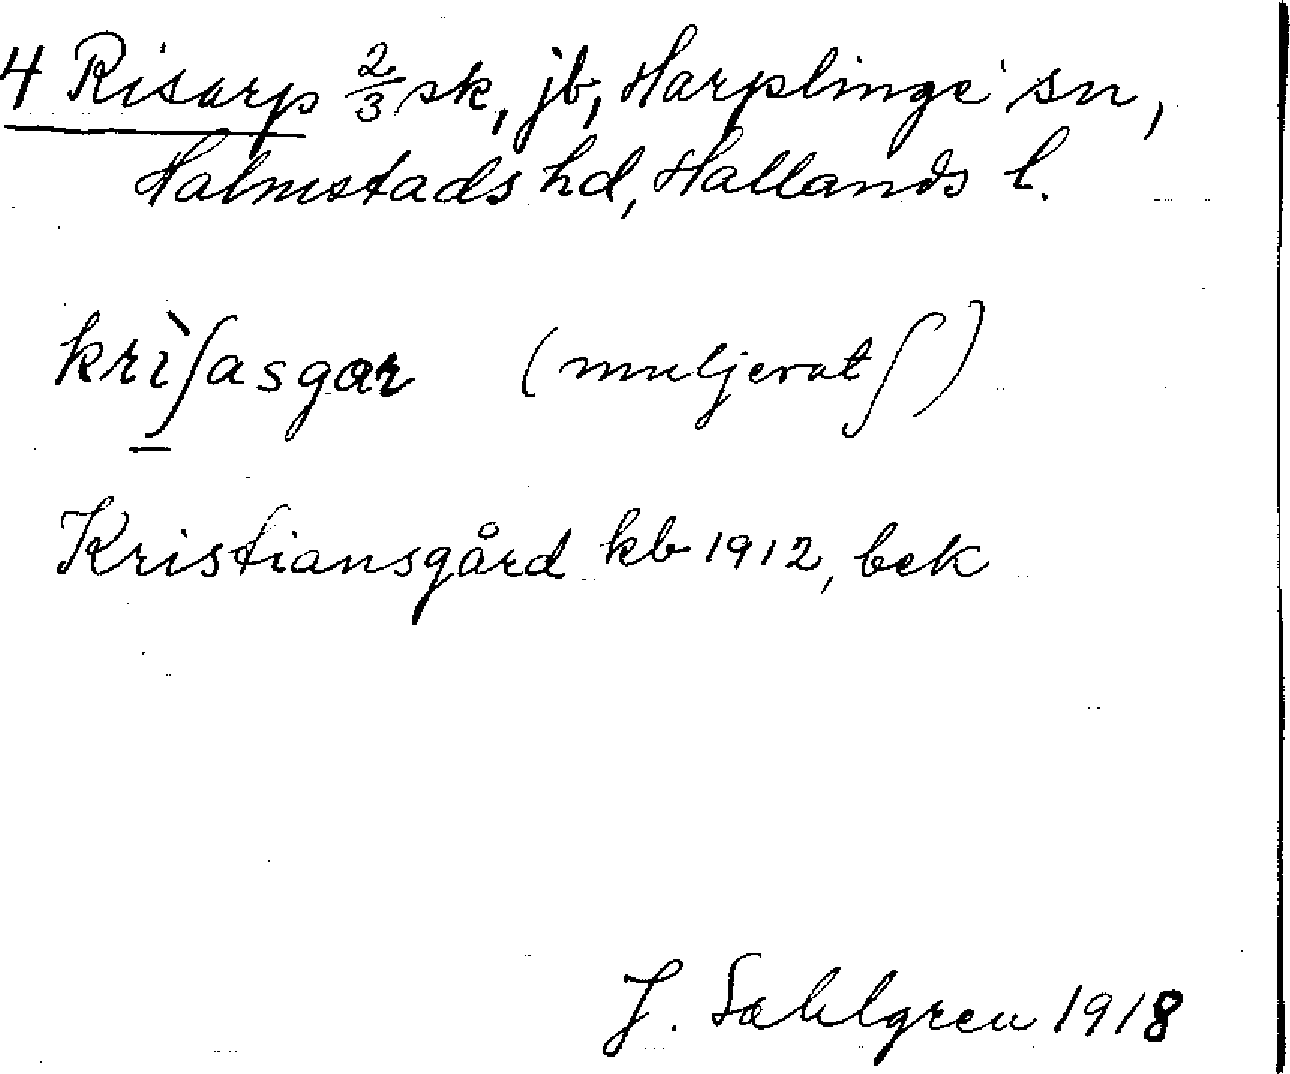 4 Risarp 2/3 sk, jb, Harplinge sn,
Halmstads hd, Hallands l.
krìʃasgar (muljerat ʃ)
Kristiansgård kb 1912, bek
J. Sahlgren 1918